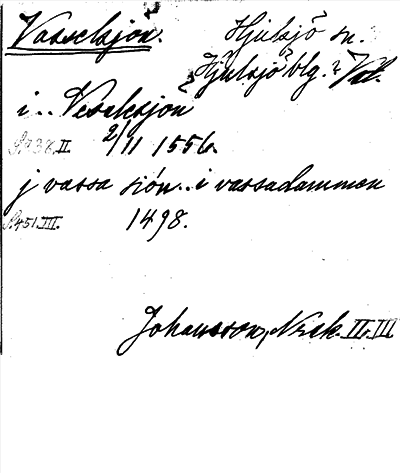 Vasselsjön. Hjulsjö sn.
Hjulsjö blg.? Vstl.
i .. Veselsjon
S. 938. II 2/11 1556.
j vassa siön .. i vassadammen
S. 451. III. 1498.
Johansson, Nrek. II. III